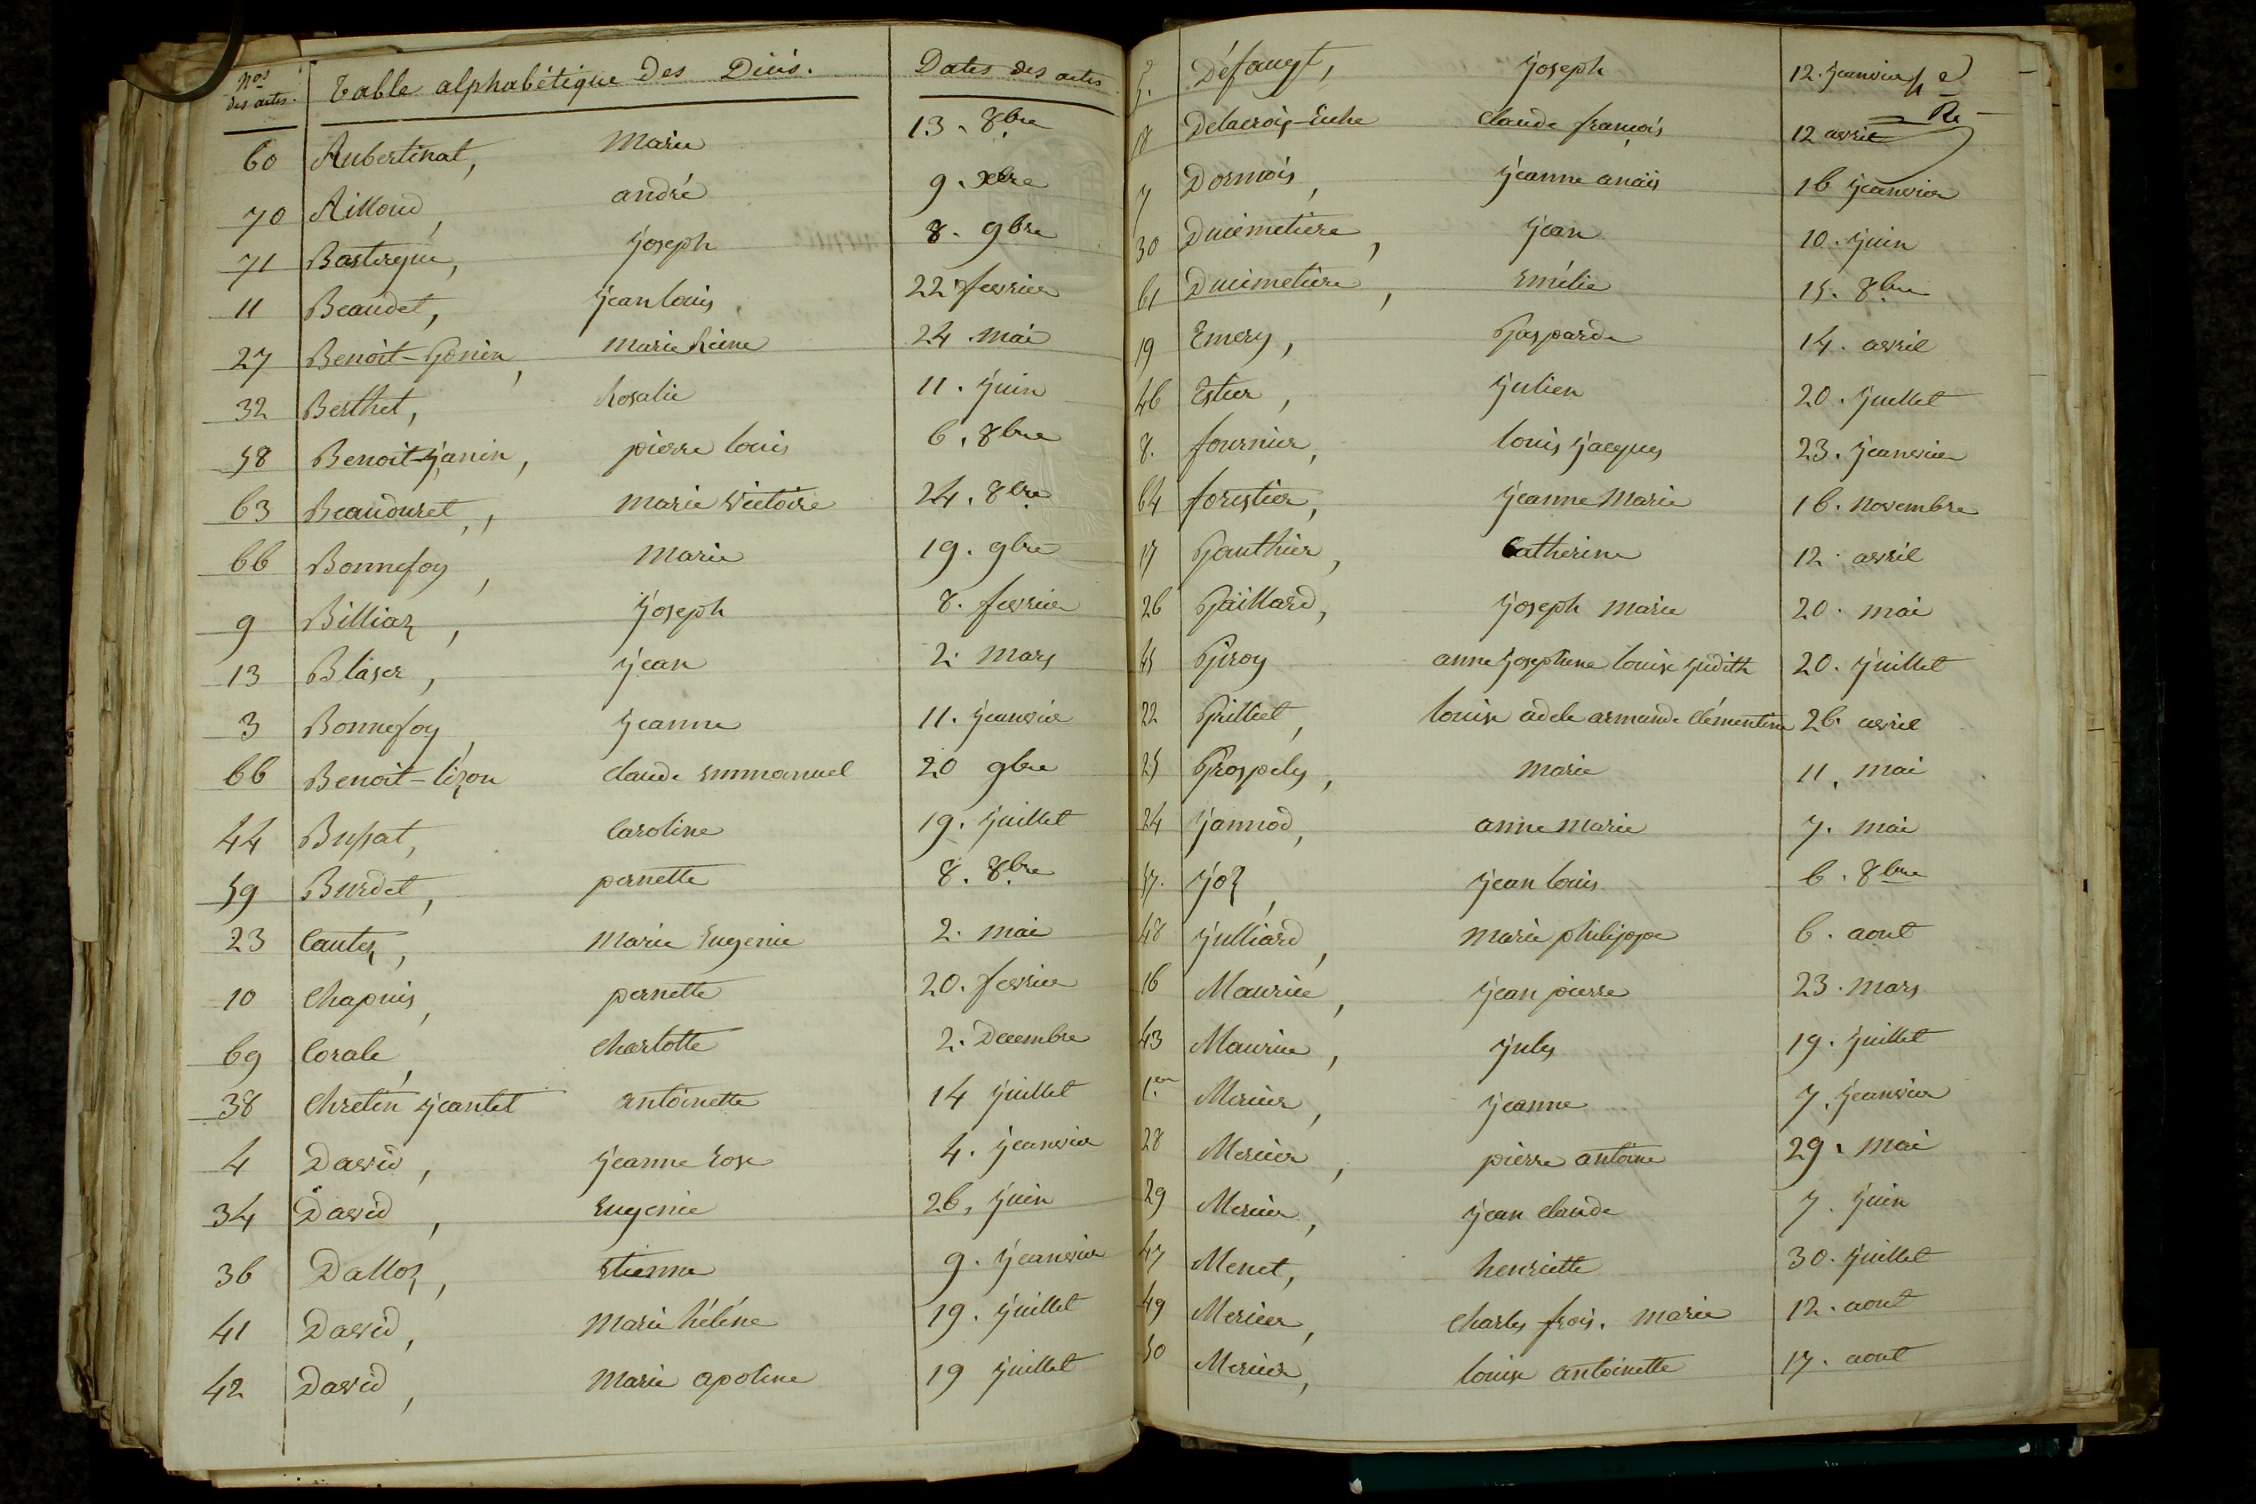 Nos des actes. Table alphabétique des Décés. Dates des actes
60 Aubertinat, Marie 13. 8bre
70 Aillaud, andré 9. Xbre
71 Joseph 8. 9bre
11 Beaudet, Jean louis 22 fevrier
27 Benoit-Gonin, Marie Reine 24. mai
32 Berthet, Rosalie 11. Juin
58 Benoit-Janin, pierre louis 6. 8bre
63 Beaudouret, marie victoire 24. 8bre
66 Bonnefoy, Marie 19. 9bre
9 Billiaz, Joseph 8. fevrier
13 Blaser, Jean 2. Mars
3 Bonnefoy, Jeanne 11. Janvier
66 Benoit-lizon claude Emmanuel 20 9bre
44 Bussat, Caroline 19. Juillet
59 Burdet, pernette 8. 8bre
23 Cautez, Marie Eugenie 2. mai
10 Chapuis, pernette 20. fevrier
69 Corale, Charlotte 2. Decembre
38 Chretin Jeantet antoinette 14 Juillet
4 David, Jeanne Rose 4. Janvier
34 David, Eugenie 26, Juin
36 Dalloz, Etienne 9. Janvier
41 David, Marie héléne 19. Juillet
42 David, Marie apoline 19 Juillet
5. Joseph 12. Janvier
18 Delacroix-Cuhe Claude françois 12 avril
7 Dormois, Jeanne anaïs 16 Janvier
30 Ducimetiere, Jean 10. Juin
61 Ducimetiere, Emélie 15. 8bre
19 Emery, Gasparde 14. avril
46 Estier, Julien 20. Juillet
8. fournier, louis Jacques 23. Janvier
64 forestier, Jeanne Marie 16. Novembre
17 Gauthier, Catherine 12. avril
26 Gaillard, Joseph Marie 20. mai
45 Giroy anne Josephine louise Judith 20. Juillet
22 Grillet, louise adele armande Clémentine 26. avril
25 Grospely, Marie 11, mai
24 Jannod, anne Marie 7. mai
57. Joz, Jean louis 6. 8bre
48 Julliard, Marie philippe 6. aout
16 Maurice, Jean pierre 23. Mars
43 Maurice, Jules 19. Juillet
1.er Mercier, Jeanne 7. Janvier
28 Mercier, pierre antoine 29. Mai
29 Mercier, Jean Claude 7. Juin
47 Menet, henriette 30. Juillet
49 Mercier, Charles frois. Marie 12. aout
50 Mercier, louise antoinette 17. aout